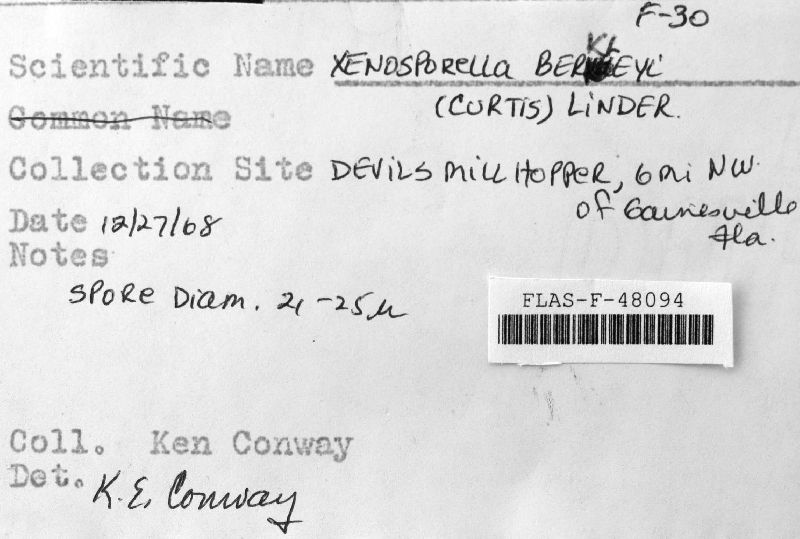 F-30
Scientific Name XENOSPORella BERKLEYI
(CURTIS) LINDER.
Common Name
Collection Site DEVILS MILL HOPPER, 6 mi NW.
of Gainesville
Fla.
Date 12/27/68
Notes
SPORE Diam. 21-25µ
FLAS-F-48094
Coll. Ken Conway
Det. K. E. Conway